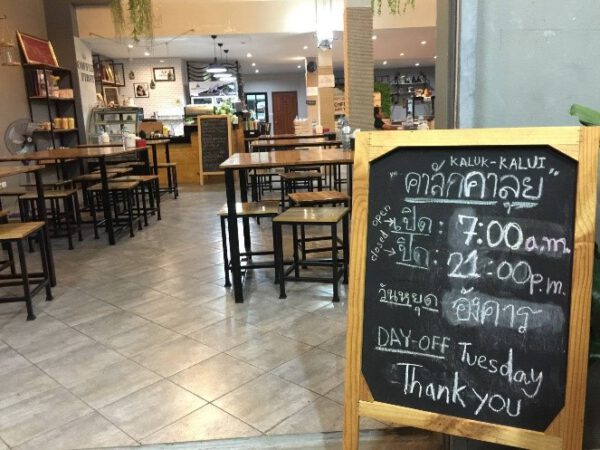 KALUK-KALUI
"คาลักคาลุย"
open → เปิด : 7:00 a.m.
closed → ปิด : 21:00 p.m.
วันหยุด อังคาร
DAY-OFF Tuesday
Thank you